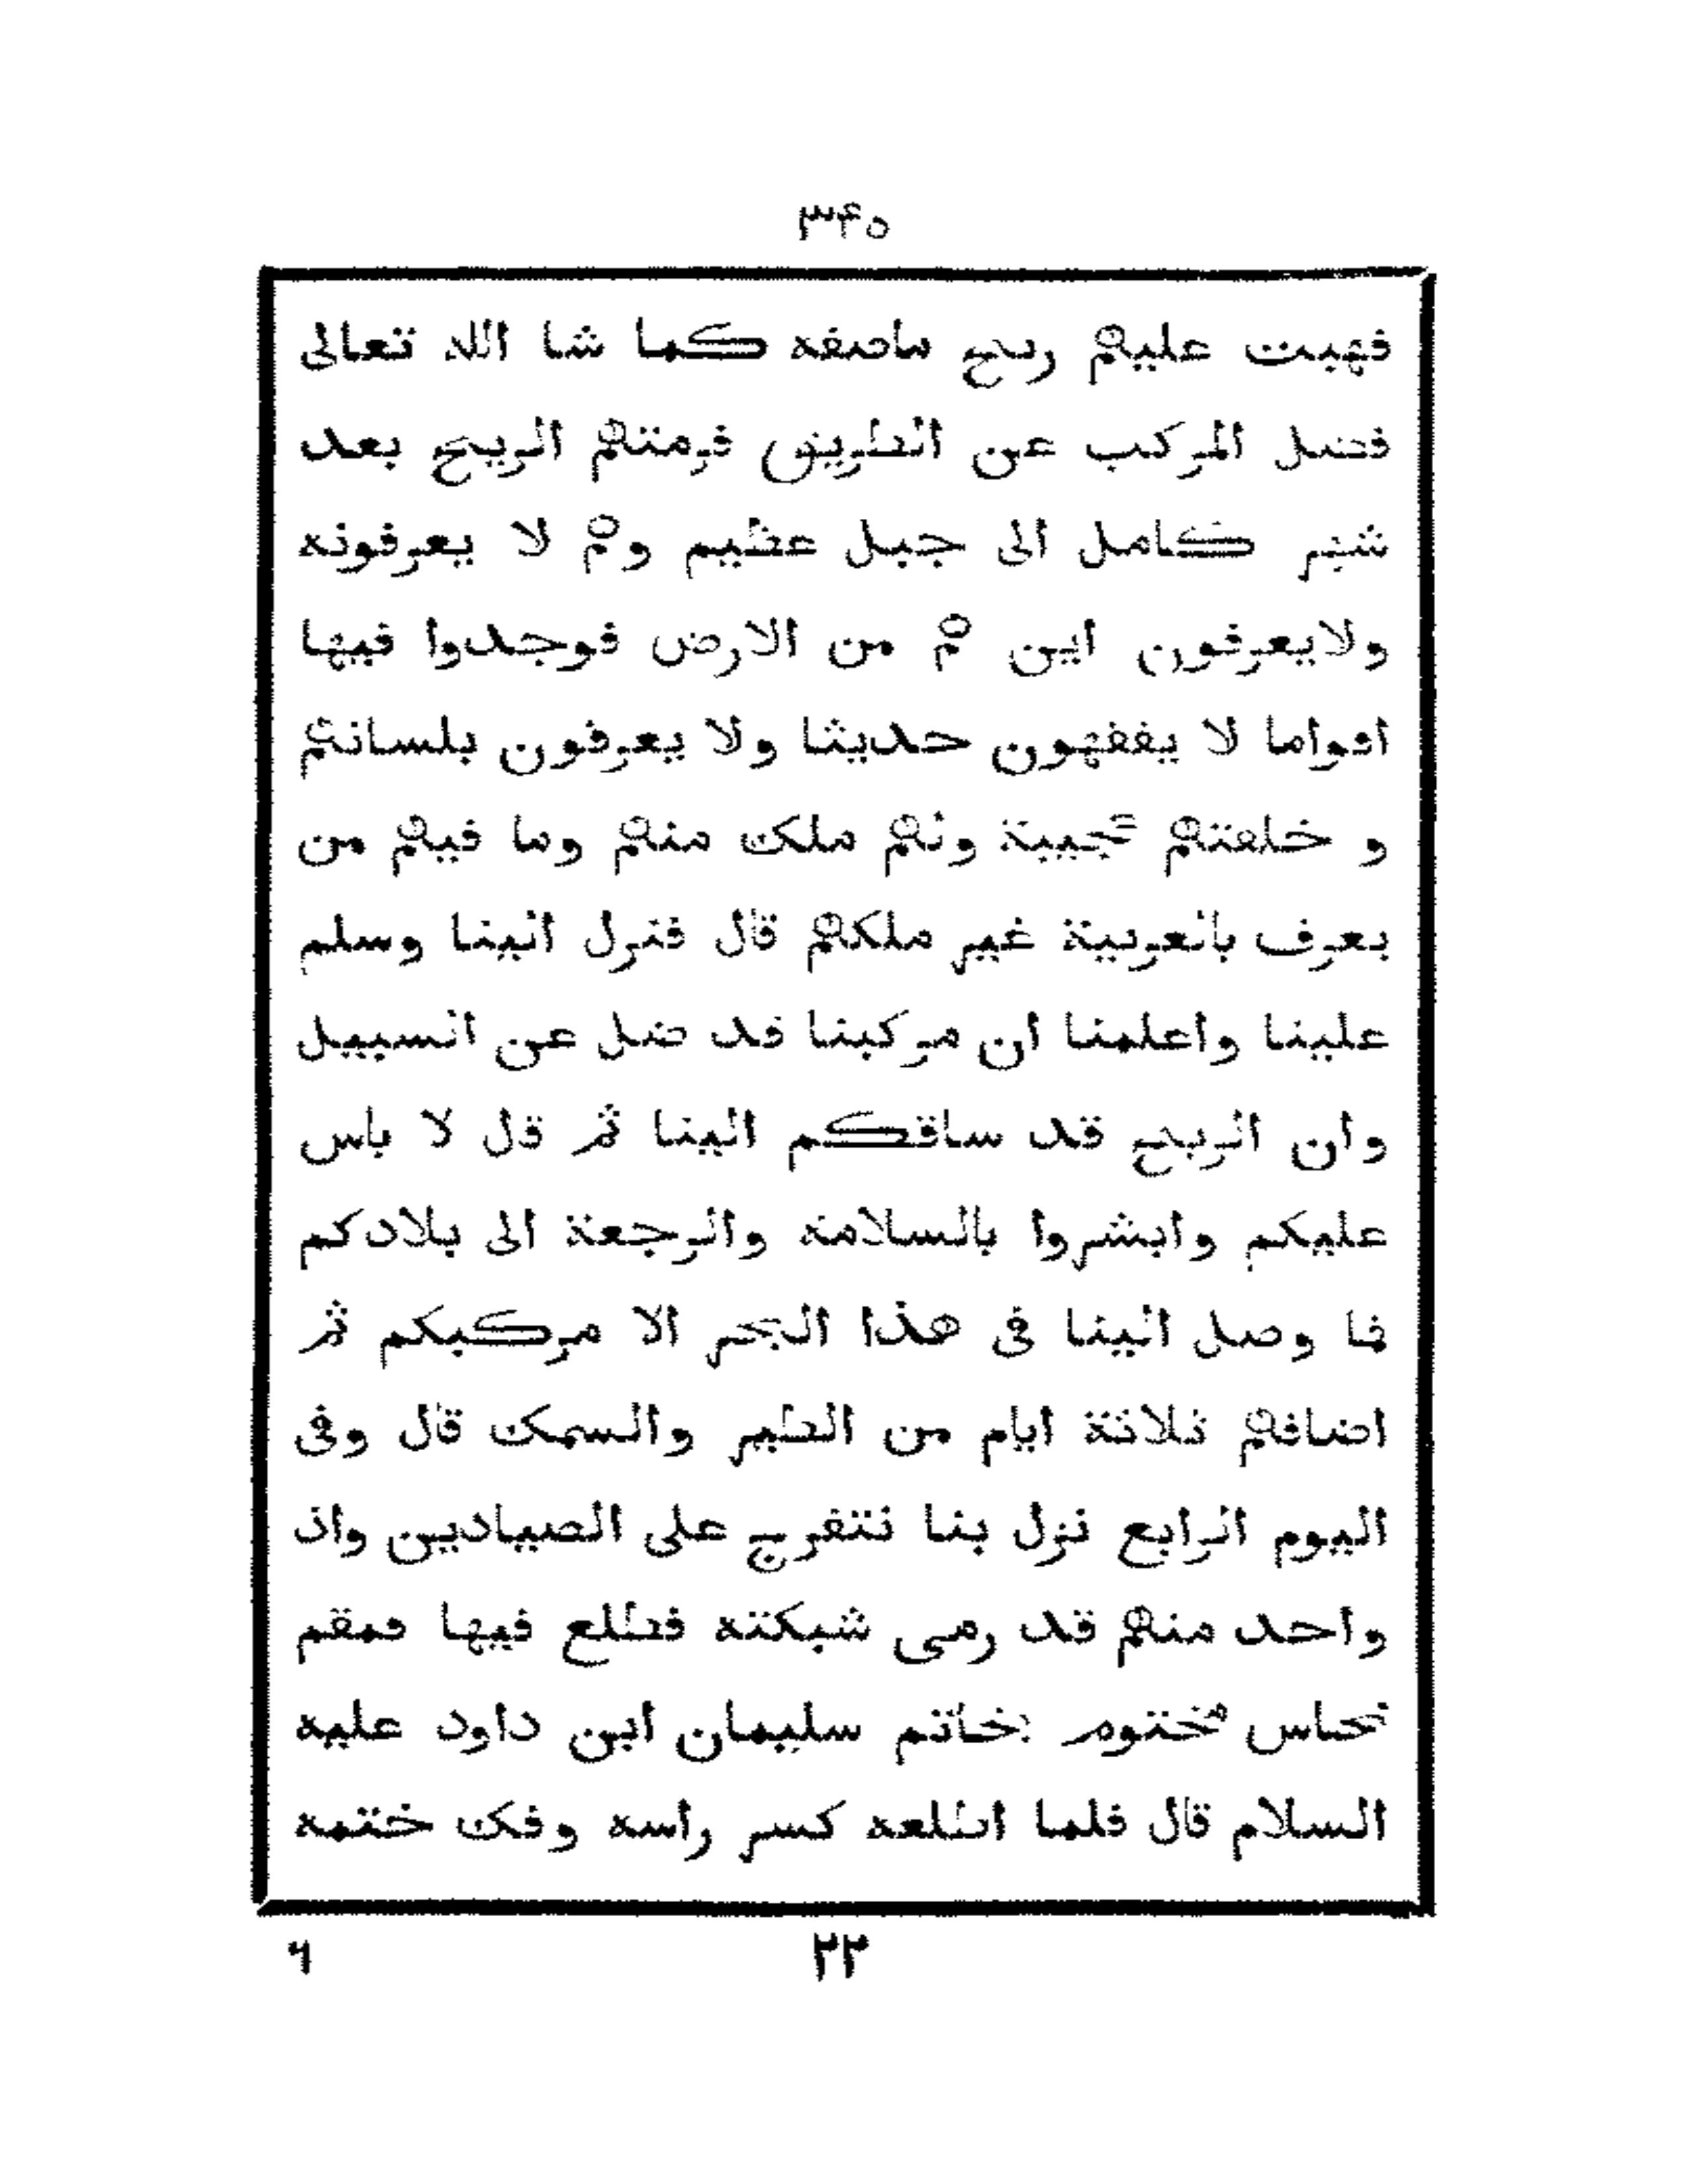 ٣٤٥
فهبت عليهم ريح عاصفه كما شا الله تعالى
فضل المركب عن الطريق فرمتهم الريح بعد
شهر كامل الى جبل عظيم وهم لا يعرفونه
ولايعرفون اين هم من الارض فوجدوا فيها
اقواما لا يفقهون حديثا ولا يعرفون بلسانهم
و خلقتهم عجيبة ولهم ملك منهم وما فيهم من
يعرف بالعربية غير ملكهم قال فنزل الينا وسلم
علينا واعلمنا ان مركبنا قد ضل عن السبيل
وان الريح قد ساقكم الينا ثم قال لا باس
عليكم وابشروا بالسلامة والرجعة الى بلادكم
فما وصل الينا فى هذا البحر الا مركبكم ثم
اضافهم ثلاثة ايام من الطير والسمك قال وفى
اليوم الرابع نزل بنا نتفرج على الصيادين واذ
واحد منهم قد رمى شبكته فطلع فيها قمقم
نحاس مختوم بخاتم سليمان ابن داود عليه
السلام قال فلما اطلعه كسر راسه وفك ختمه
٢٣
٦